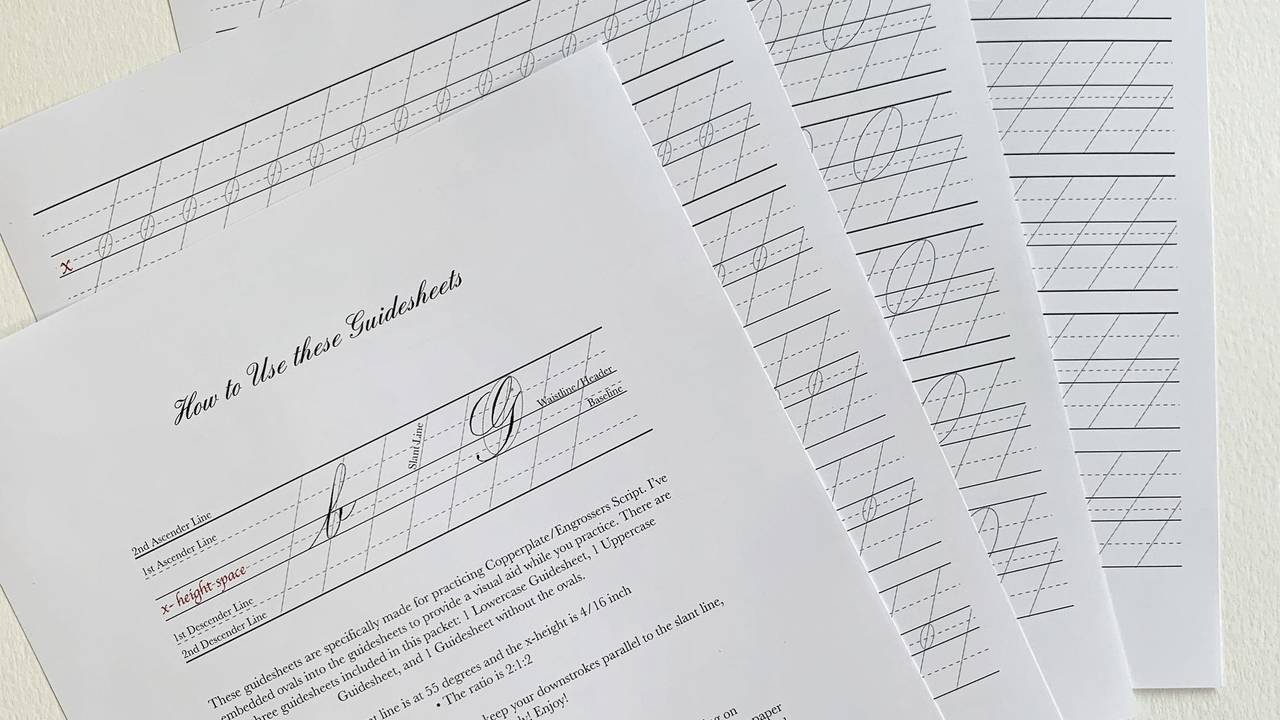 x
How to Use these Guidesheets
2nd Ascender Line
1st Ascender Line
x-height space
1st Descender Line
2nd Descender Line
b
Slant Line
G
Waistline/Header
Baseline
These guidesheets are specifically made for practicing Copperplate/Engrossers Script. I've
embedded ovals into the guidesheets to provide a visual aid while you practice. There are
three guidesheets included in this packet: 1 Lowercase Guidesheet, 1 Uppercase
Guidesheet, and 1 Guidesheet without the ovals.
line is at 55 degrees and the x-height is 4/16 inch
• The ratio is 2:1:2
keep your downstrokes parallel to the slant line,
Enjoy!
on
paper